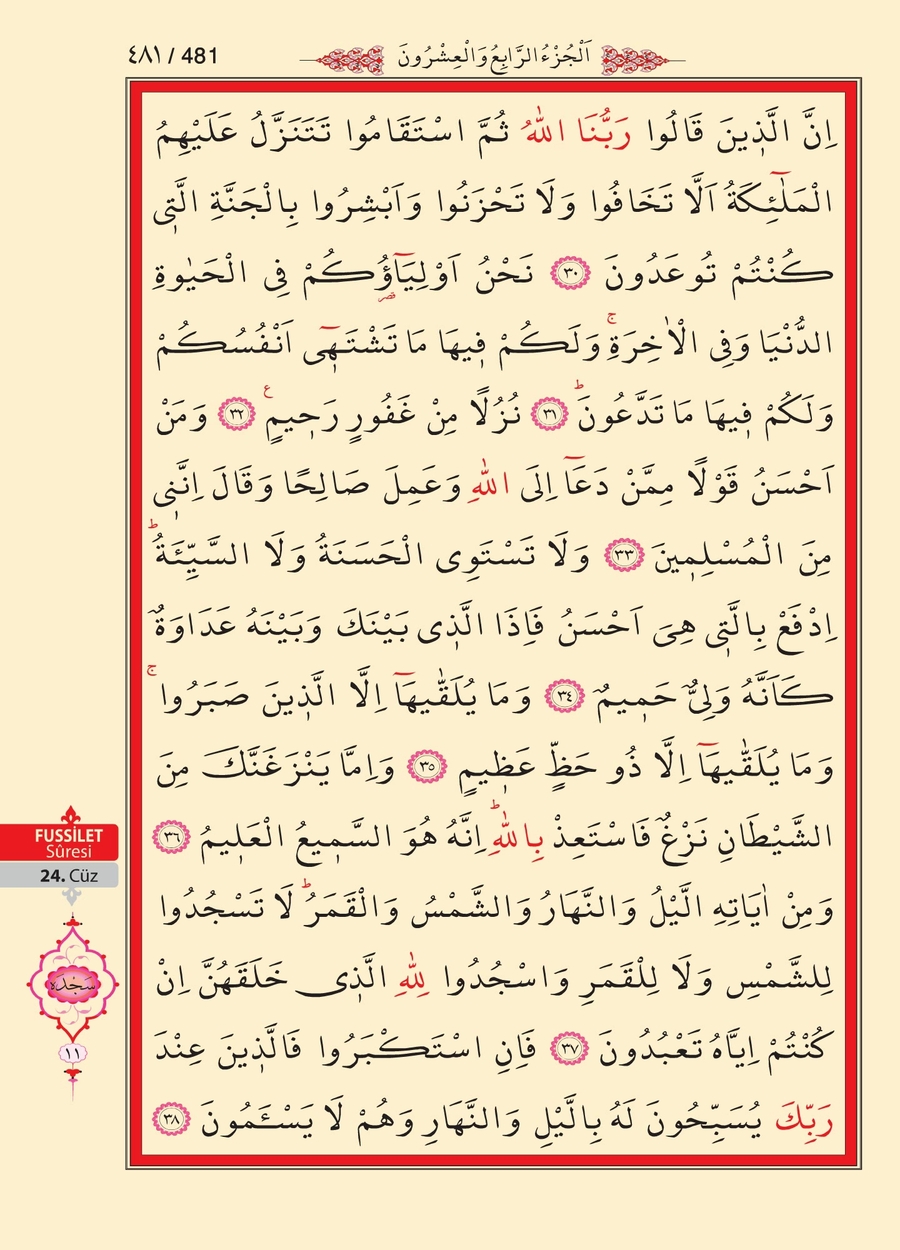 ٤٨١ / 481
اَلْجُزْءُ الرَّابِعُ وَالْعِشْرُونَ
اِنَّ الَّذ۪ينَ قَالُوا رَبُّنَا اللّٰهُ ثُمَّ اسْتَقَامُوا تَتَنَزَّلُ عَلَيْهِمُ
الْمَلٰٓئِكَةُ اَلَّا تَخَافُوا وَلَا تَحْزَنُوا وَاَبْشِرُوا بِالْجَنَّةِ الَّت۪ي
كُنْتُمْ تُوعَدُونَ ﴿٣٠﴾ نَحْنُ اَوْلِيَٓاؤُ۬كُمْ فِي الْحَيٰوةِ
قصر
الدُّنْيَا وَفِي الْاٰخِرَةِۚ وَلَكُمْ ف۪يهَا مَا تَشْتَه۪ٓي اَنْفُسُكُمْ
وَلَكُمْ ف۪يهَا مَا تَدَّعُونَۜ ﴿٣١﴾ نُزُلًا مِنْ غَفُورٍ رَح۪يمٍ ع ﴿٣٢﴾ وَمَنْ
اَحْسَنُ قَوْلًا مِمَّنْ دَعَٓا اِلَى اللّٰهِ وَعَمِلَ صَالِحًا وَقَالَ اِنَّن۪ي
مِنَ الْمُسْلِم۪ينَ ﴿٣٣﴾ وَلَا تَسْتَوِي الْحَسَنَةُ وَلَا السَّيِّئَةُۜ
اِدْفَعْ بِالَّت۪ي هِيَ اَحْسَنُ فَاِذَا الَّذ۪ي بَيْنَكَ وَبَيْنَهُ عَدَاوَةٌ
كَاَنَّهُ وَلِيٌّ حَم۪يمٌ ﴿٣٤﴾ وَمَا يُلَقّٰيهَٓا اِلَّا الَّذ۪ينَ صَبَرُواۚ
وَمَا يُلَقّٰيهَٓا اِلَّا ذُو حَظٍّ عَظ۪يمٍ ﴿٣٥﴾ وَاِمَّا يَنْزَغَنَّكَ مِنَ
الشَّيْطَانِ نَزْغٌ فَاسْتَعِذْ بِاللّٰهِۜ اِنَّهُ هُوَ السَّم۪يعُ الْعَل۪يمُ ﴿٣٦﴾
وَمِنْ اٰيَاتِهِ الَّيْلُ وَالنَّهَارُ وَالشَّمْسُ وَالْقَمَرُۜ لَا تَسْجُدُوا
لِلشَّمْسِ وَلَا لِلْقَمَرِ وَاسْجُدُوا لِلّٰهِ الَّذ۪ي خَلَقَهُنَّ اِنْ
كُنْتُمْ اِيَّاهُ تَعْبُدُونَ ﴿٣٧﴾ فَاِنِ اسْتَكْبَرُوا فَالَّذ۪ينَ عِنْدَ
رَبِّكَ يُسَبِّحُونَ لَهُ بِالَّيْلِ وَالنَّهَارِ وَهُمْ لَا يَسْـَٔمُونَ ﴿٣٨﴾
FUSSİLET
Sûresi
24. Cüz
سَجْدَه
١١